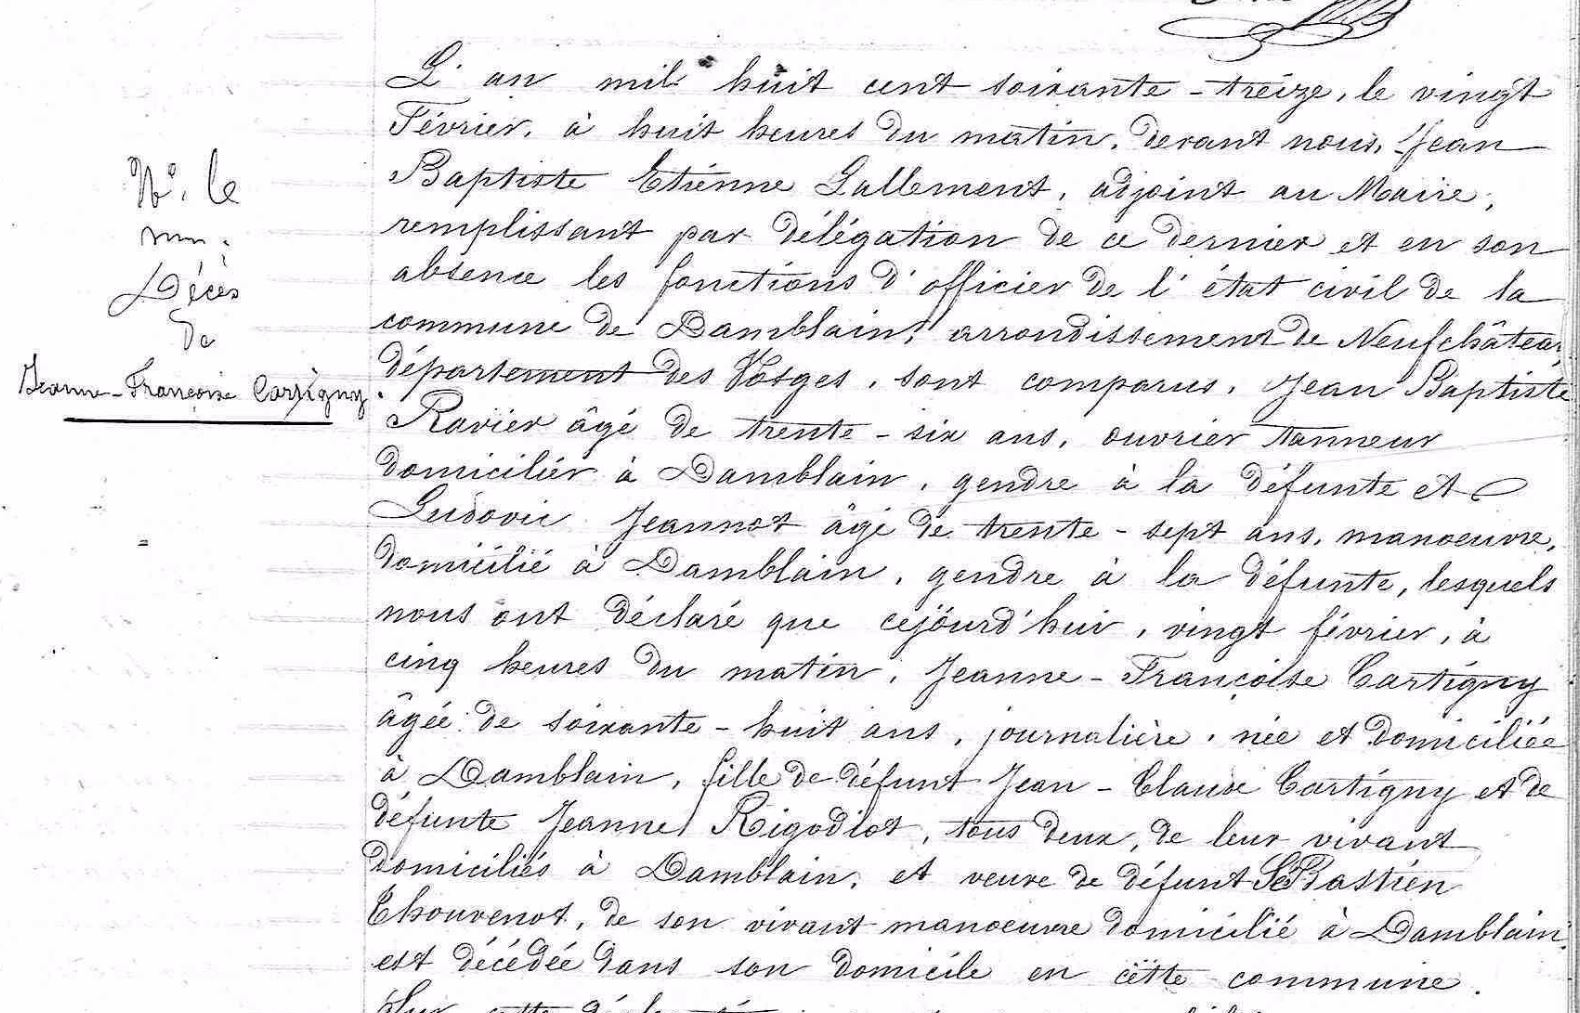 L'an mil huit cent soixante-treize, le vingt
Février, à huit heures du matin, devant nous, Jean
Baptiste Etienne Lallement, adjoint au Maire,
remplissant par délégation de ce dernier et en son
absence les fonctions d'officier de l'état civil de la
commune de Damblain, arrondissement de Neufchâteau,
département des Vosges, sont comparus, Jean Baptiste
Ravier âgé de trente-six ans, ouvrier tanneur
domicilier à Damblain, gendre à la défunte et
Ludovic Jeannot âgé de trente-sept ans, manoeuvre,
domicilié à Damblain, gendre à la défunte, lesquels
nous ont déclaré que cejourd'hui, vingt février, à
cinq heures du matin, Jeanne-Françoise Cartigny
âgée de soixante-huit ans, journalière, née et domiciliée
à Damblain, fille de défunt Jean-Claude Cartigny et de
défunte Jeanne Rigodiot, tous deux, de leur vivant
domiciliés à Damblain, et veuve de défunt SéBastien
Thouvenot, de son vivant manoeuvre domicilié à Damblain,
est décédée dans son domicile en cette commune.
Sur cette
N°. 
Décès
de
Jeanne-Françoise Cartigny.